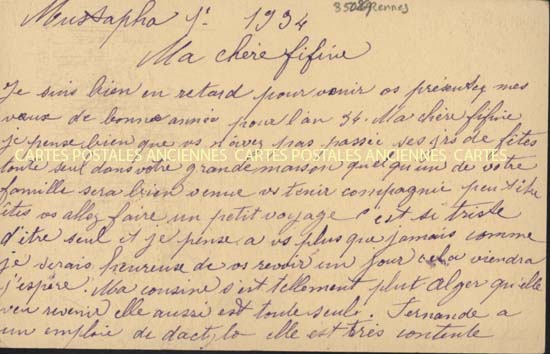 Mustapha 1r 1934
85089 Rennes
Ma chère fifine
Je suis bien en retard pour venir vs présentez mes
vœux de bonne année pour l'an 34. Ma chère fifine
je pense bien que vs n'avez pas passée ses jrs de fêtes
toute seul dans votre grande maison quelqu'un de votre
CARTES POSTALES ANCIENNES CARTES POSTALES ANCIENNES
famille sera bien venue vs tenir compagnie peut être
êtes vs allez faire un petit voyage c'est si triste
d'être seul et je pense a vs plus que jamais comme
je serais heureuse de vs revoir un jour cela viendra
j'espère. Ma cousine s'est tellement plut Alger qu'elle
veu revenir elle aussi est toute seule. Fernande a
un emploie de dactylo elle est très contente